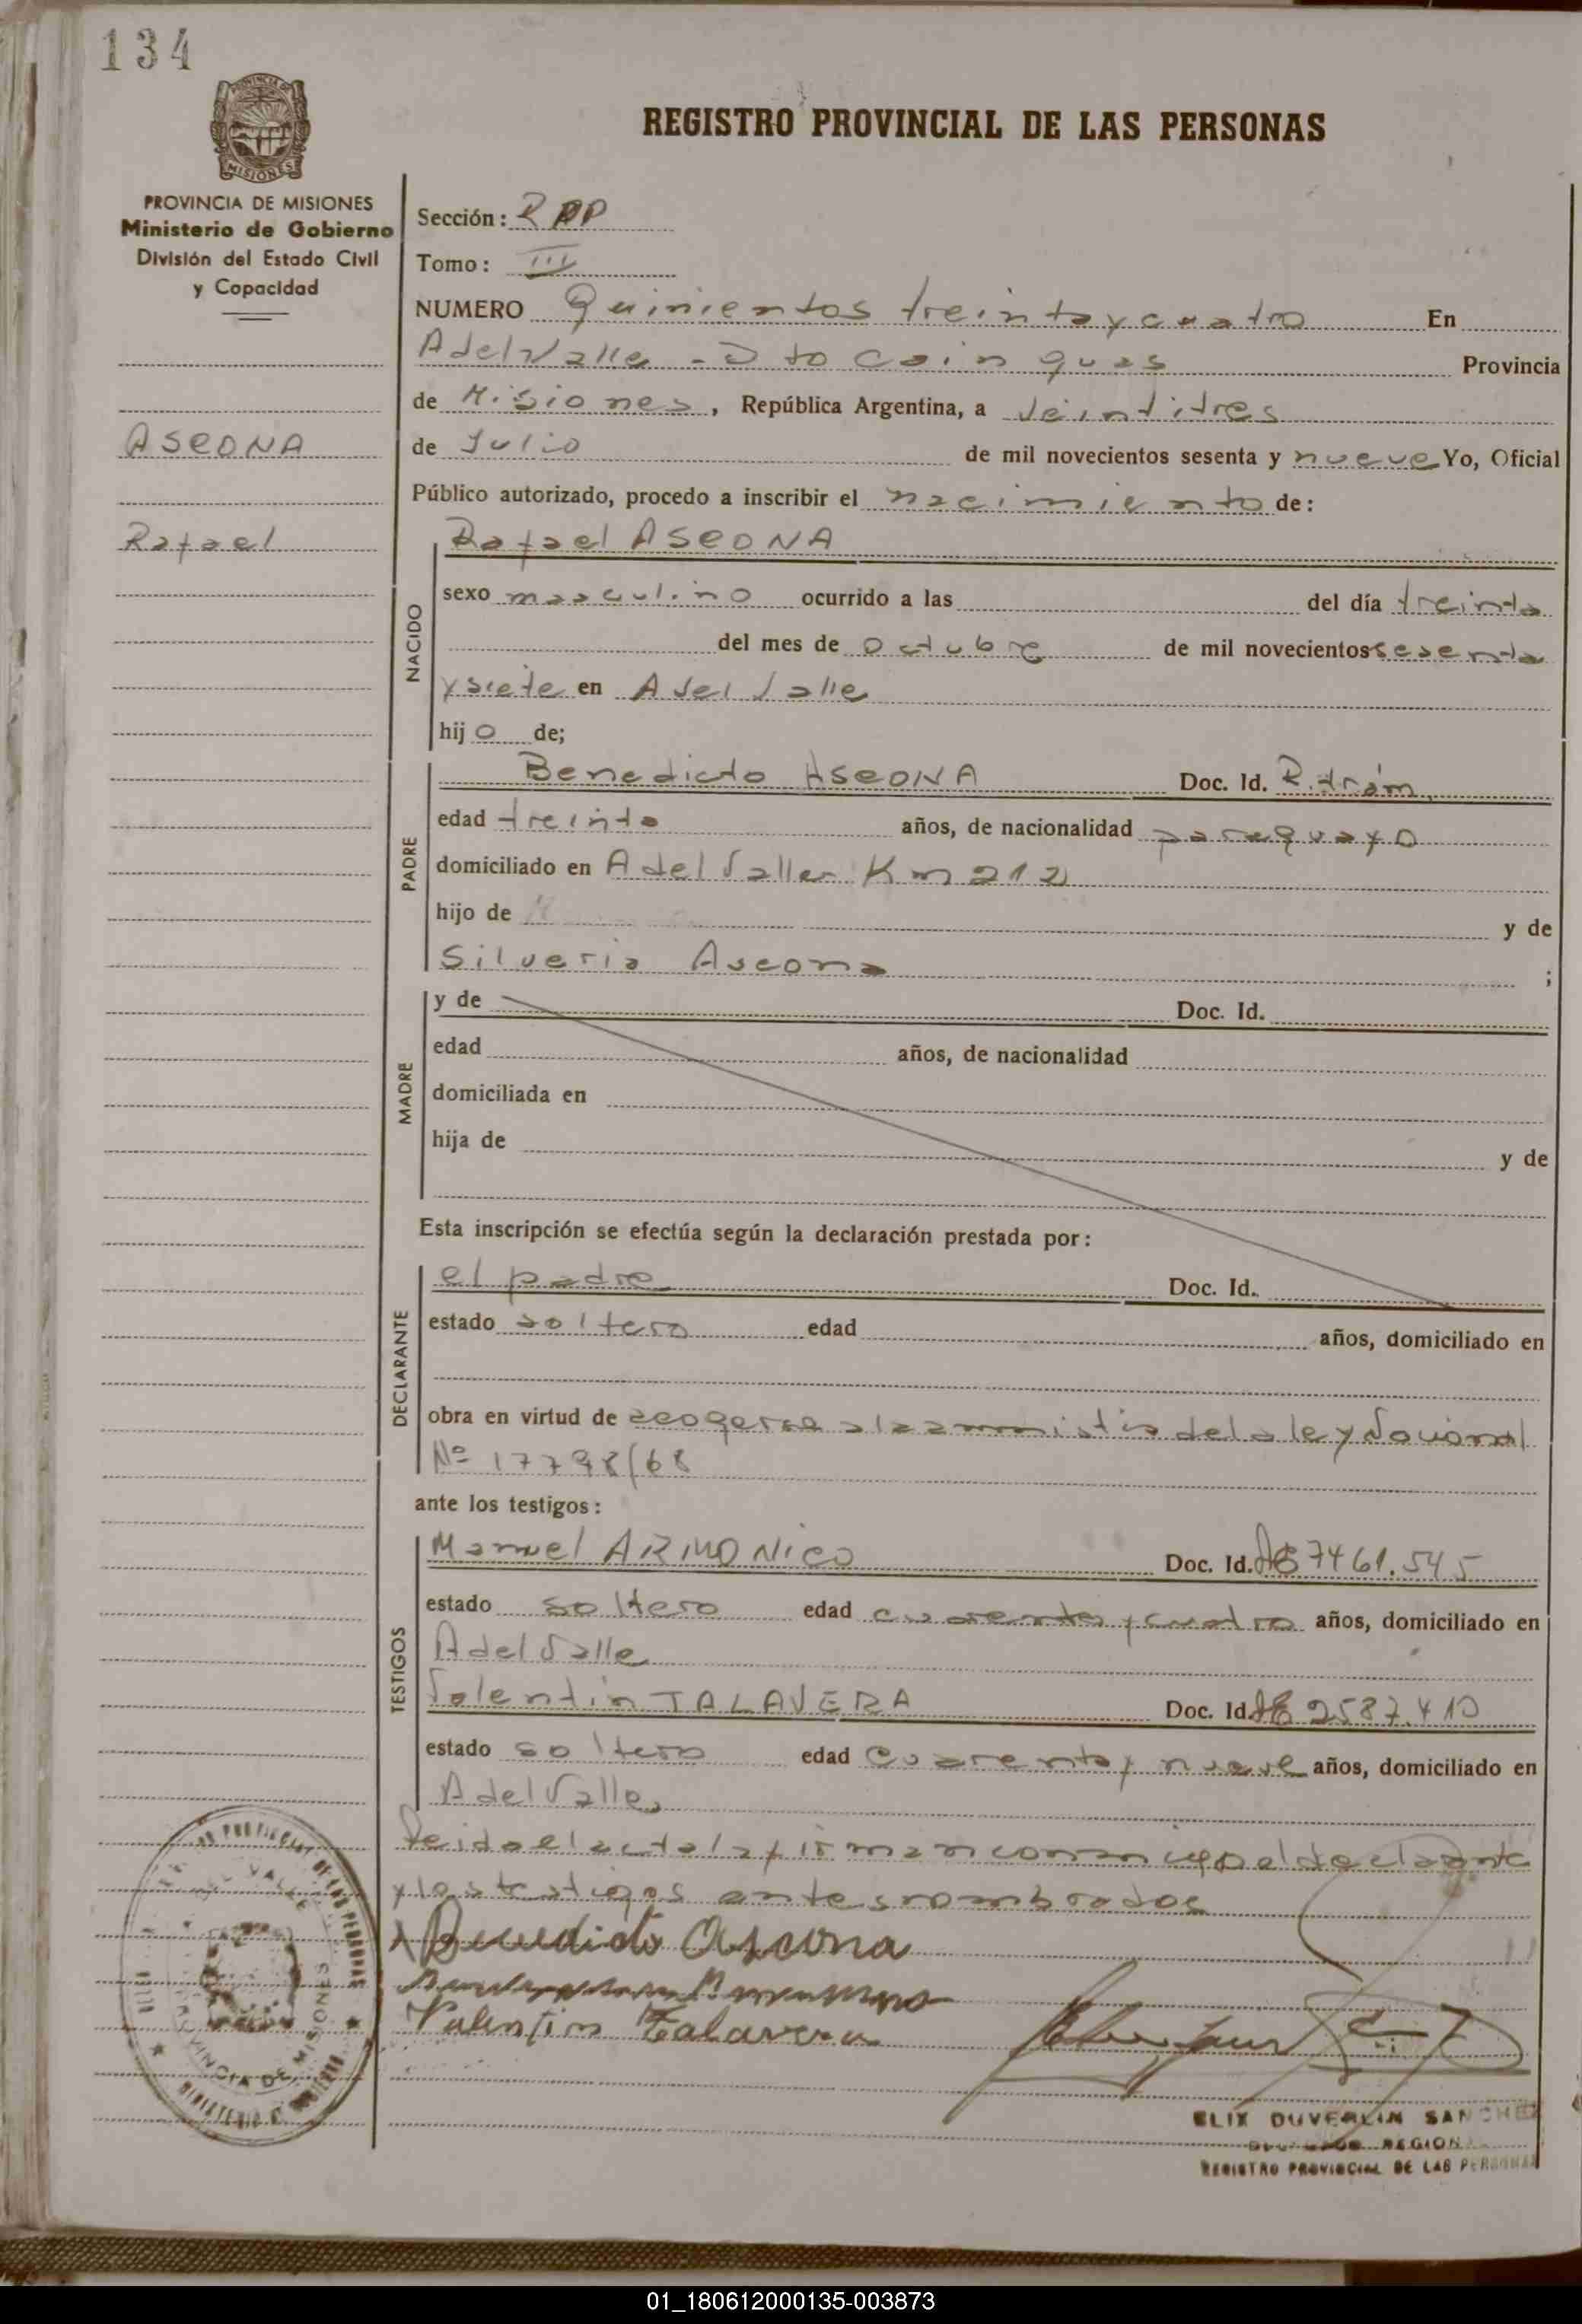 134
PROVINCIA DE
MISIONES
REGISTRO PROVINCIAL DE LAS PERSONAS
PROVINCIA DE MISIONES
Ministerio de Gobierno
División del Estado Civil
y Capacidad
ASCONA
Rafael
Sección: RPP
Tomo: III
NUMERO Quinientos treinta y cuatro En
A del Valle - Dto Cainguas Provincia
de Misiones, República Argentina, a veintitres
de Julio de mil novecientos sesenta y nueve Yo, Oficial
Público autorizado, procedo a inscribir el nacimiento de:
NACIDO
Rafael ASCONA
sexo masculino ocurrido a las del día treinta
del mes de octubre de mil novecientos sesenta
y siete en A del Valle
hijo de;
PADRE
Benedicto ASCONA Doc. Id. R. trám.
edad treinta años, de nacionalidad paraguayo
domiciliado en A del Valle Km 212
hijo de y de
Silveria Ascona ;
MADRE
y de Doc. Id.
edad años, de nacionalidad
domiciliada en
hija de y de
Esta inscripción se efectúa según la declaración prestada por:
DECLARANTE
el padre Doc. Id.
estado soltero edad años, domiciliado en
obra en virtud de acogerse a la amnistia de la ley Nacional
Nº 17798/68
ante los testigos:
TESTIGOS
Manuel ARMONICO Doc. Id. 7461.545
estado soltero edad cuarenta y cuatro años, domiciliado en
A del Valle
Valentin TALAVERA Doc. Id. 2587.410
estado soltero edad cuarenta y nueve años, domiciliado en
A del Valle
Leida el acta la firman conmigo el declarante
y los testigos antes nombrados
Benedicto Ascona
Valentin Talavera
PROVINCIA DE MISIONES
ELIX DUVERLIN SANCHEZ
REGIONAL
REGISTRO PROVINCIAL DE LAS PERSONAS
01_180612000135-003873